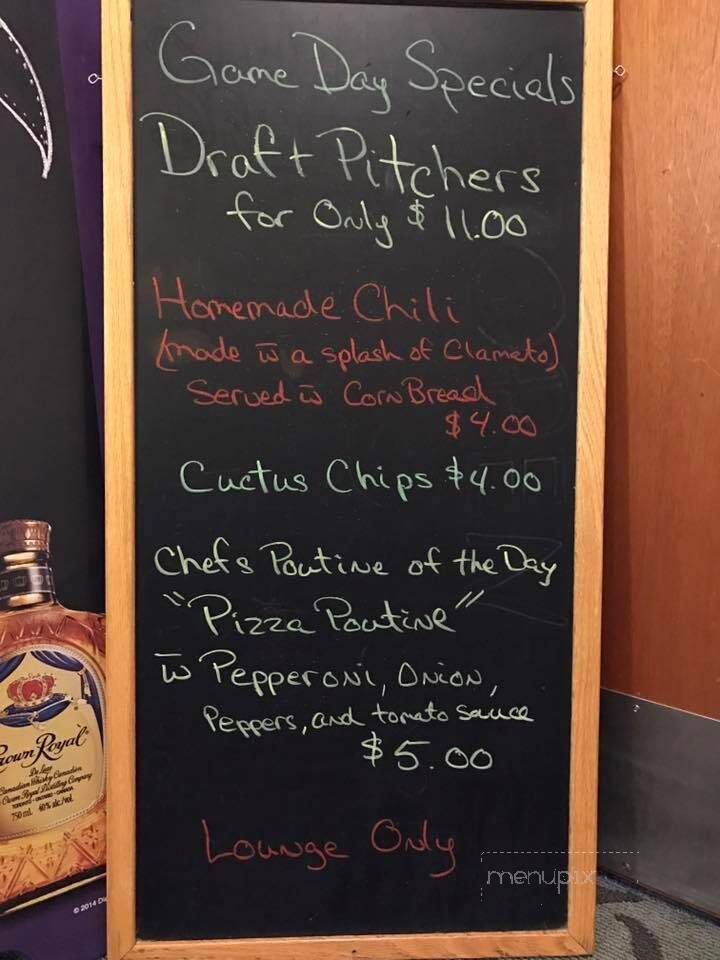 Game Day Specials
Draft Pitchers
for Only $ 11.00
Homemade Chili
(made w̄ a splash of Clamato)
Served w̄ Corn Bread
$4.00
Cactus Chips $4.00
Chefs Poutine of the Day
"Pizza Poutine"
w̄ Pepperoni, Onion,
Peppers, and tomato sauce
$5.00
Lounge Only
menupix
Crown Royal
De Luxe
Canadian Whisky Canadien
Crown Royal Distilling Company
750 mL 40% alc./vol.
© 2014